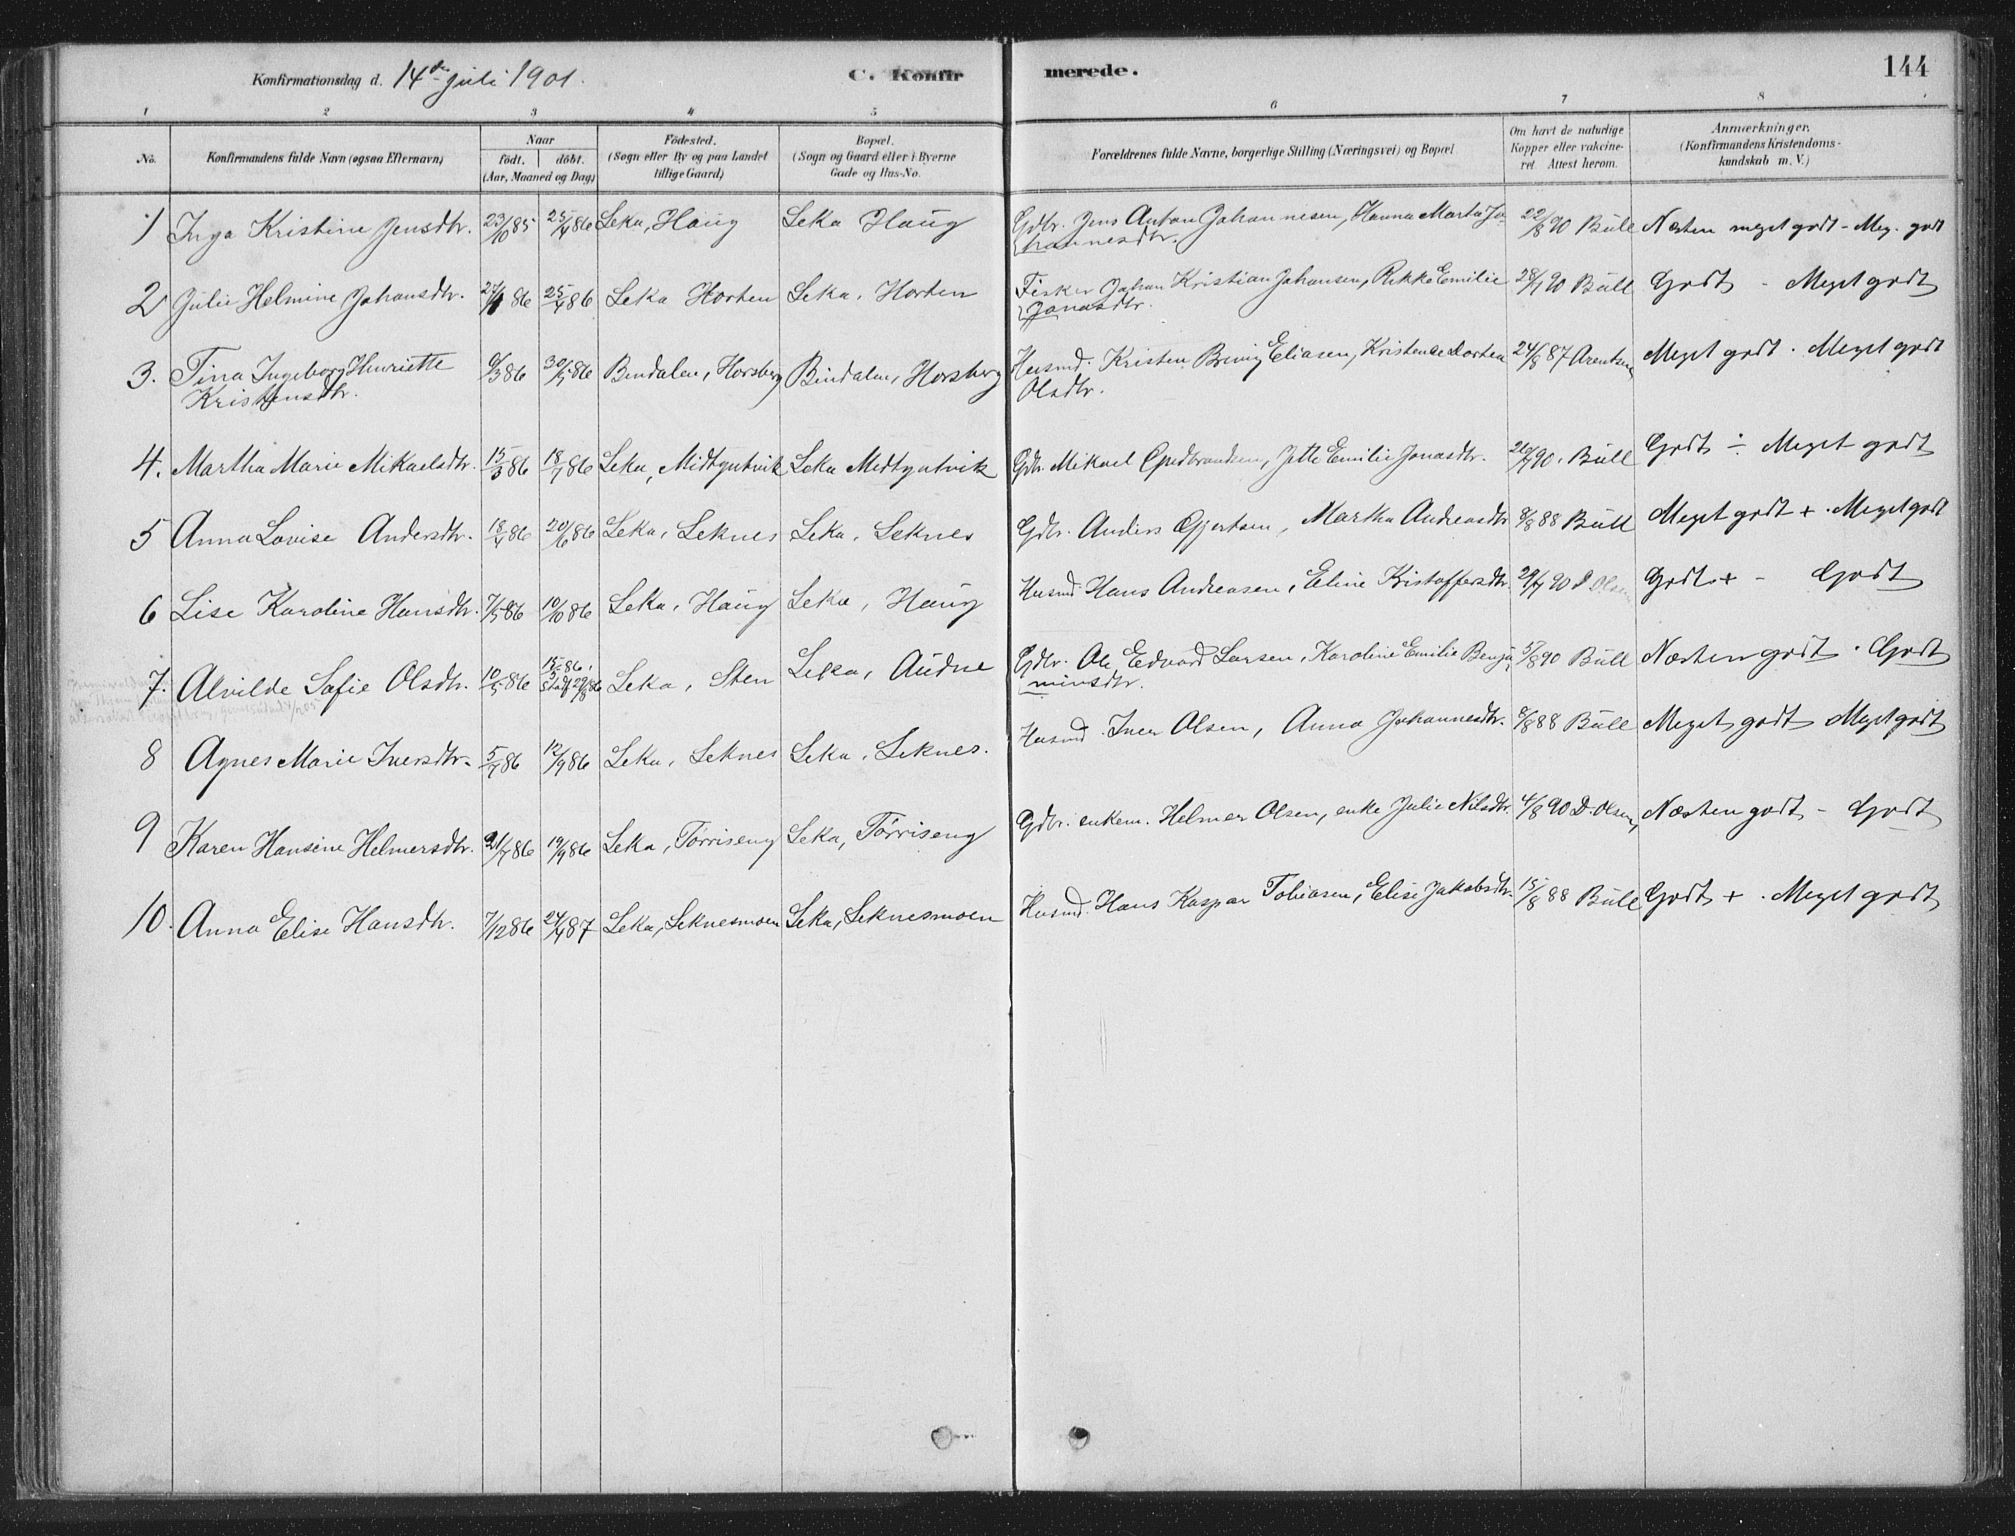 Konfirmationsdag d. 14de juli 1901.
C. Konfirmerede.
144
1 2 3 4 5 6 7 8
No.
Konfirmandens fulde Navn (ogsaa Efternavn)
Naar
födt. döbt.
(Aar, Maaned og Dag)
Födested.
(Sogn eller By og paa Landet
tillige Gaard)
Bopæl.
(Sogn og Gaard eller i Byerne
Gade og Hus-No.
Forældrenes fulde Navne, borgerlige Stilling (Næringsvei) og Bopæl
Om havt de naturlige
Kopper eller vakcine-
ret. Attest herom.
Anmærkninger.
(Konfirmandens Kristendoms-
kundskab m. V.)
1 Inga Kristine Jensdtr. 23/10 85 25/4 86 Leka, Haug Leka Haug Gdbr. Jens Anton Johannesen, Hanna Marta Jo-
hannesdtr. 22/8 90 Bull Næsten meget godt - Meg. godt
2 Julie Helmine Johansdtr. 86 25/4 86 Leka Horten Leka, Horten Fisker Johan Kristian Johansen, Rikke Emilie
Jonasdtr. 28/7 90 Bull Godt - Meget godt
3. Tina Ingeborg Henriette
Kristensdtr. 9/3 86 30/5 86 Bindalen, Horsberg Bindalen, Horsberg Husmd. Kristen Bring Eliasen, Kristense Dortea
Olsdtr. 24/8 87 Arentsen Meget godt. Meget godt
4. Martha Marie Mikaelsdtr. 15/3 86 18/7 86 Leka, Midtgutvik Leka Midtgutvik Gdbr. Mikael Gudbrandsen, Jette Emilie Jonasdtr. 26/7 90. Bull Godt ÷ Meget godt
5 Anna Lovise Andersdtr. 18/4 86 20/6 86 Leka, Leknes Leka. Leknes Gdbr. Anders Gjertsen, Martha Andreasdtr. 8/8 88 Bull Meget godt + . Meget godt
6 Lise Karoline Hansdtr. 7/5 86 10/10 86 Leka, Haug Leka, Haug Husmd. Hans Andreasen, Eline Kristoffersdtr. 29/7 90 D. Olsen Godt + - Godt
7. Alvilde Sofie Olsdtr. 10/5 86 15/5 86. Stadf 29/8 86 Leka, Sten Leka, Audne Gdbr. Ole Edvard Larsen, Karoline Emilie Benja-
minsdtr. 5/8 90 Bull Næsten godt. Godt
8 Agnes Marie Iversdtr. 5/7 86 12/9 86 Leka, Leknes Leka, Leknes. Husmd. Iver Olsen, Anna Johannesdtr. 8/8 88 Bull Meget godt Meget godt
9 Karen Hansine Helmersdtr. 21/7 86 19/9 86 Leka, Tørriseng Leka, Tørriseng Gdbr. enkem. Helmer Olsen, enke Julie Nilsdtr. 4/8 90 D. Olsen, Næsten godt - Godt
10. Anna Elise Hansdtr. 7/12 86 24/4 87 Leka, Leknesmoen Leka, Leknesmoen Husmd. Hans Kaspar Tobiasen, Elise Jakobsdtr. 15/8 88 Bull Godt + . Meget godt